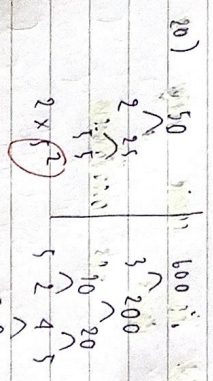 20)
50
2 25
5 5
2 × 5²
600
3 200
10 20
5 2 4 5